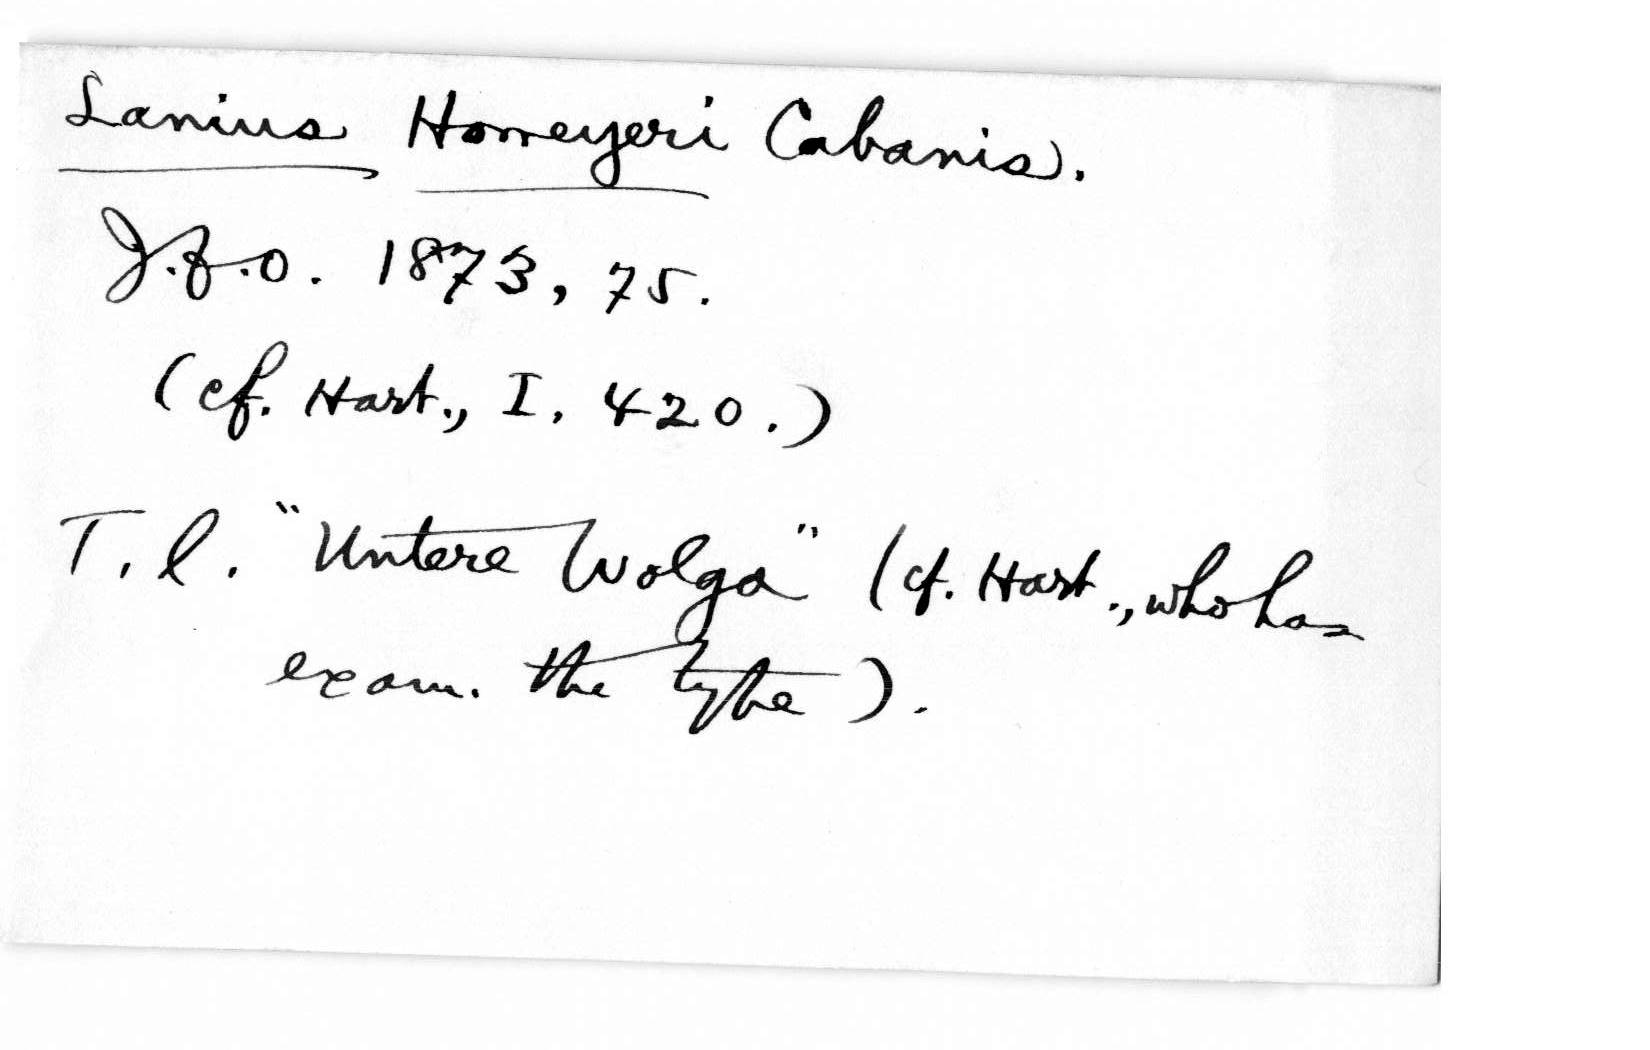 Lanius Homeyeri Cabanis.
J.f.O. 1873, 75.
(cf. Hart., I. 420.)
T. l. "Untere Wolga" (cf. Hart., who has
exam. the type).